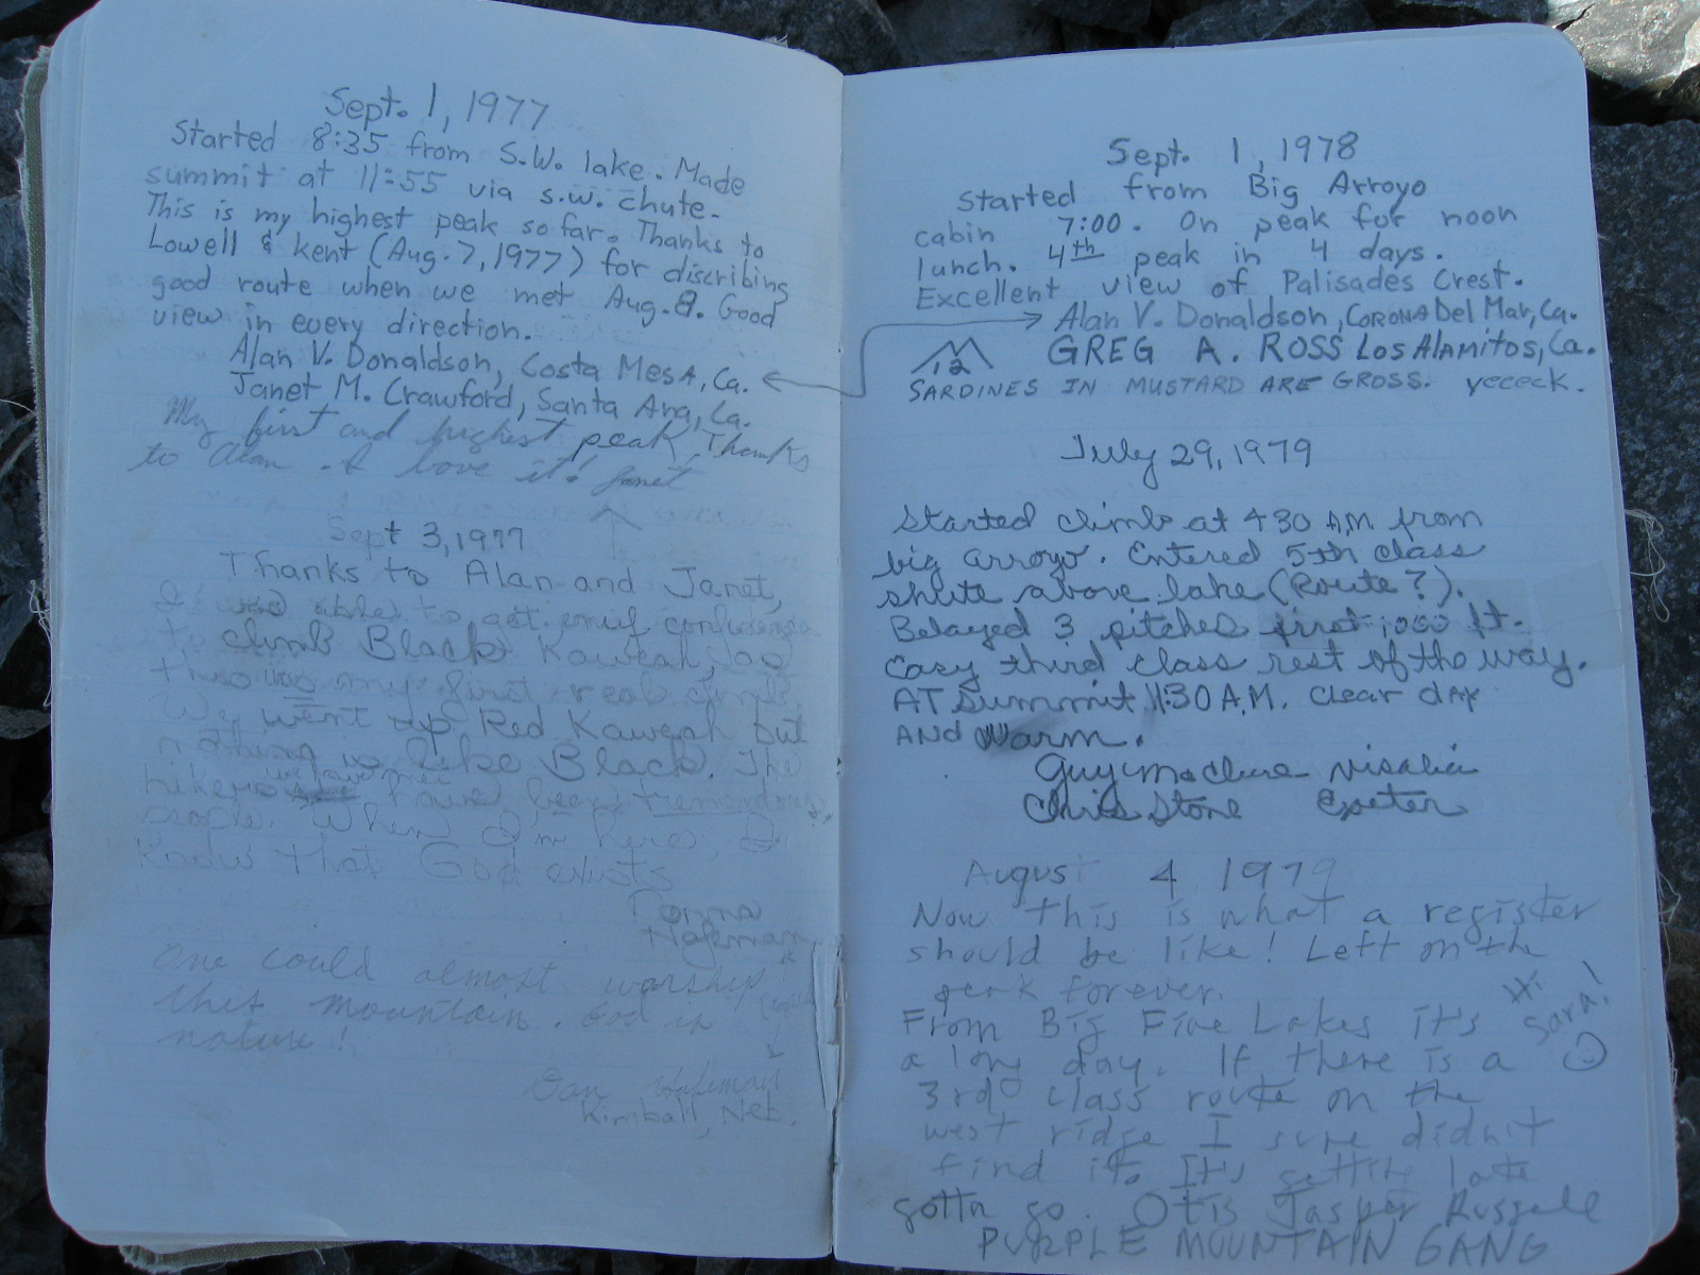 Sept. 1, 1977
Started 8:35 from S.W. lake. Made
summit at 11:55 via s.w. chute.
This is my highest peak so far. Thanks to
Lowell & Kent (Aug. 7, 1977) for discribing
good route when we met Aug. 8. Good
view in every direction.
Alan V. Donaldson, Costa Mesa, Ca.
Janet M. Crawford, Santa Ana, Ca.
My first and highest peak, Thanks
to Alan. I love it! Janet
Sept 3, 1977
Thanks to Alan and Janet,
I was able to get enuf confidence
to climb Black Kaweah, as
this was my first real climb.
We went up Red Kaweah but
nothing is like Black. The
hikers we have met have been tremendous
people. When I'm here, I
know that God exists
Donna
Hafeman
One could almost worship
this mountain. God is
nature!
Dan Hafeman
Kimball, Neb.
Sept. 1, 1978
Started from Big Arroyo
cabin 7:00. On peak for noon
lunch. 4th peak in 4 days.
Excellent view of Palisades Crest.
Alan V. Donaldson, Corona Del Mar, Ca.
12 GREG A. ROSS Los Alamitos, Ca.
SARDINES IN MUSTARD ARE GROSS. yececk.
July 29, 1979
Started climb at 430 A.M. from
big arroyo. Entered 5th class
shute above lake (Route?).
Belayed 3 pitches first 1000 ft.
easy third class rest of the way.
AT Summit 11:30 A.M. clear day
AND Warm.
Guy McClure Visalia
Chris Stone Exeter
August 4 1979
Now this is what a register
should be like! Left on the
peak forever.
From Big Five Lakes it's
a long day. If there is a
Hi Sara!
3rd class route on the
west ridge I sure didn't
find it. It's getting late
gotta go. Otis Jasper Russell
PURPLE MOUNTAIN GANG